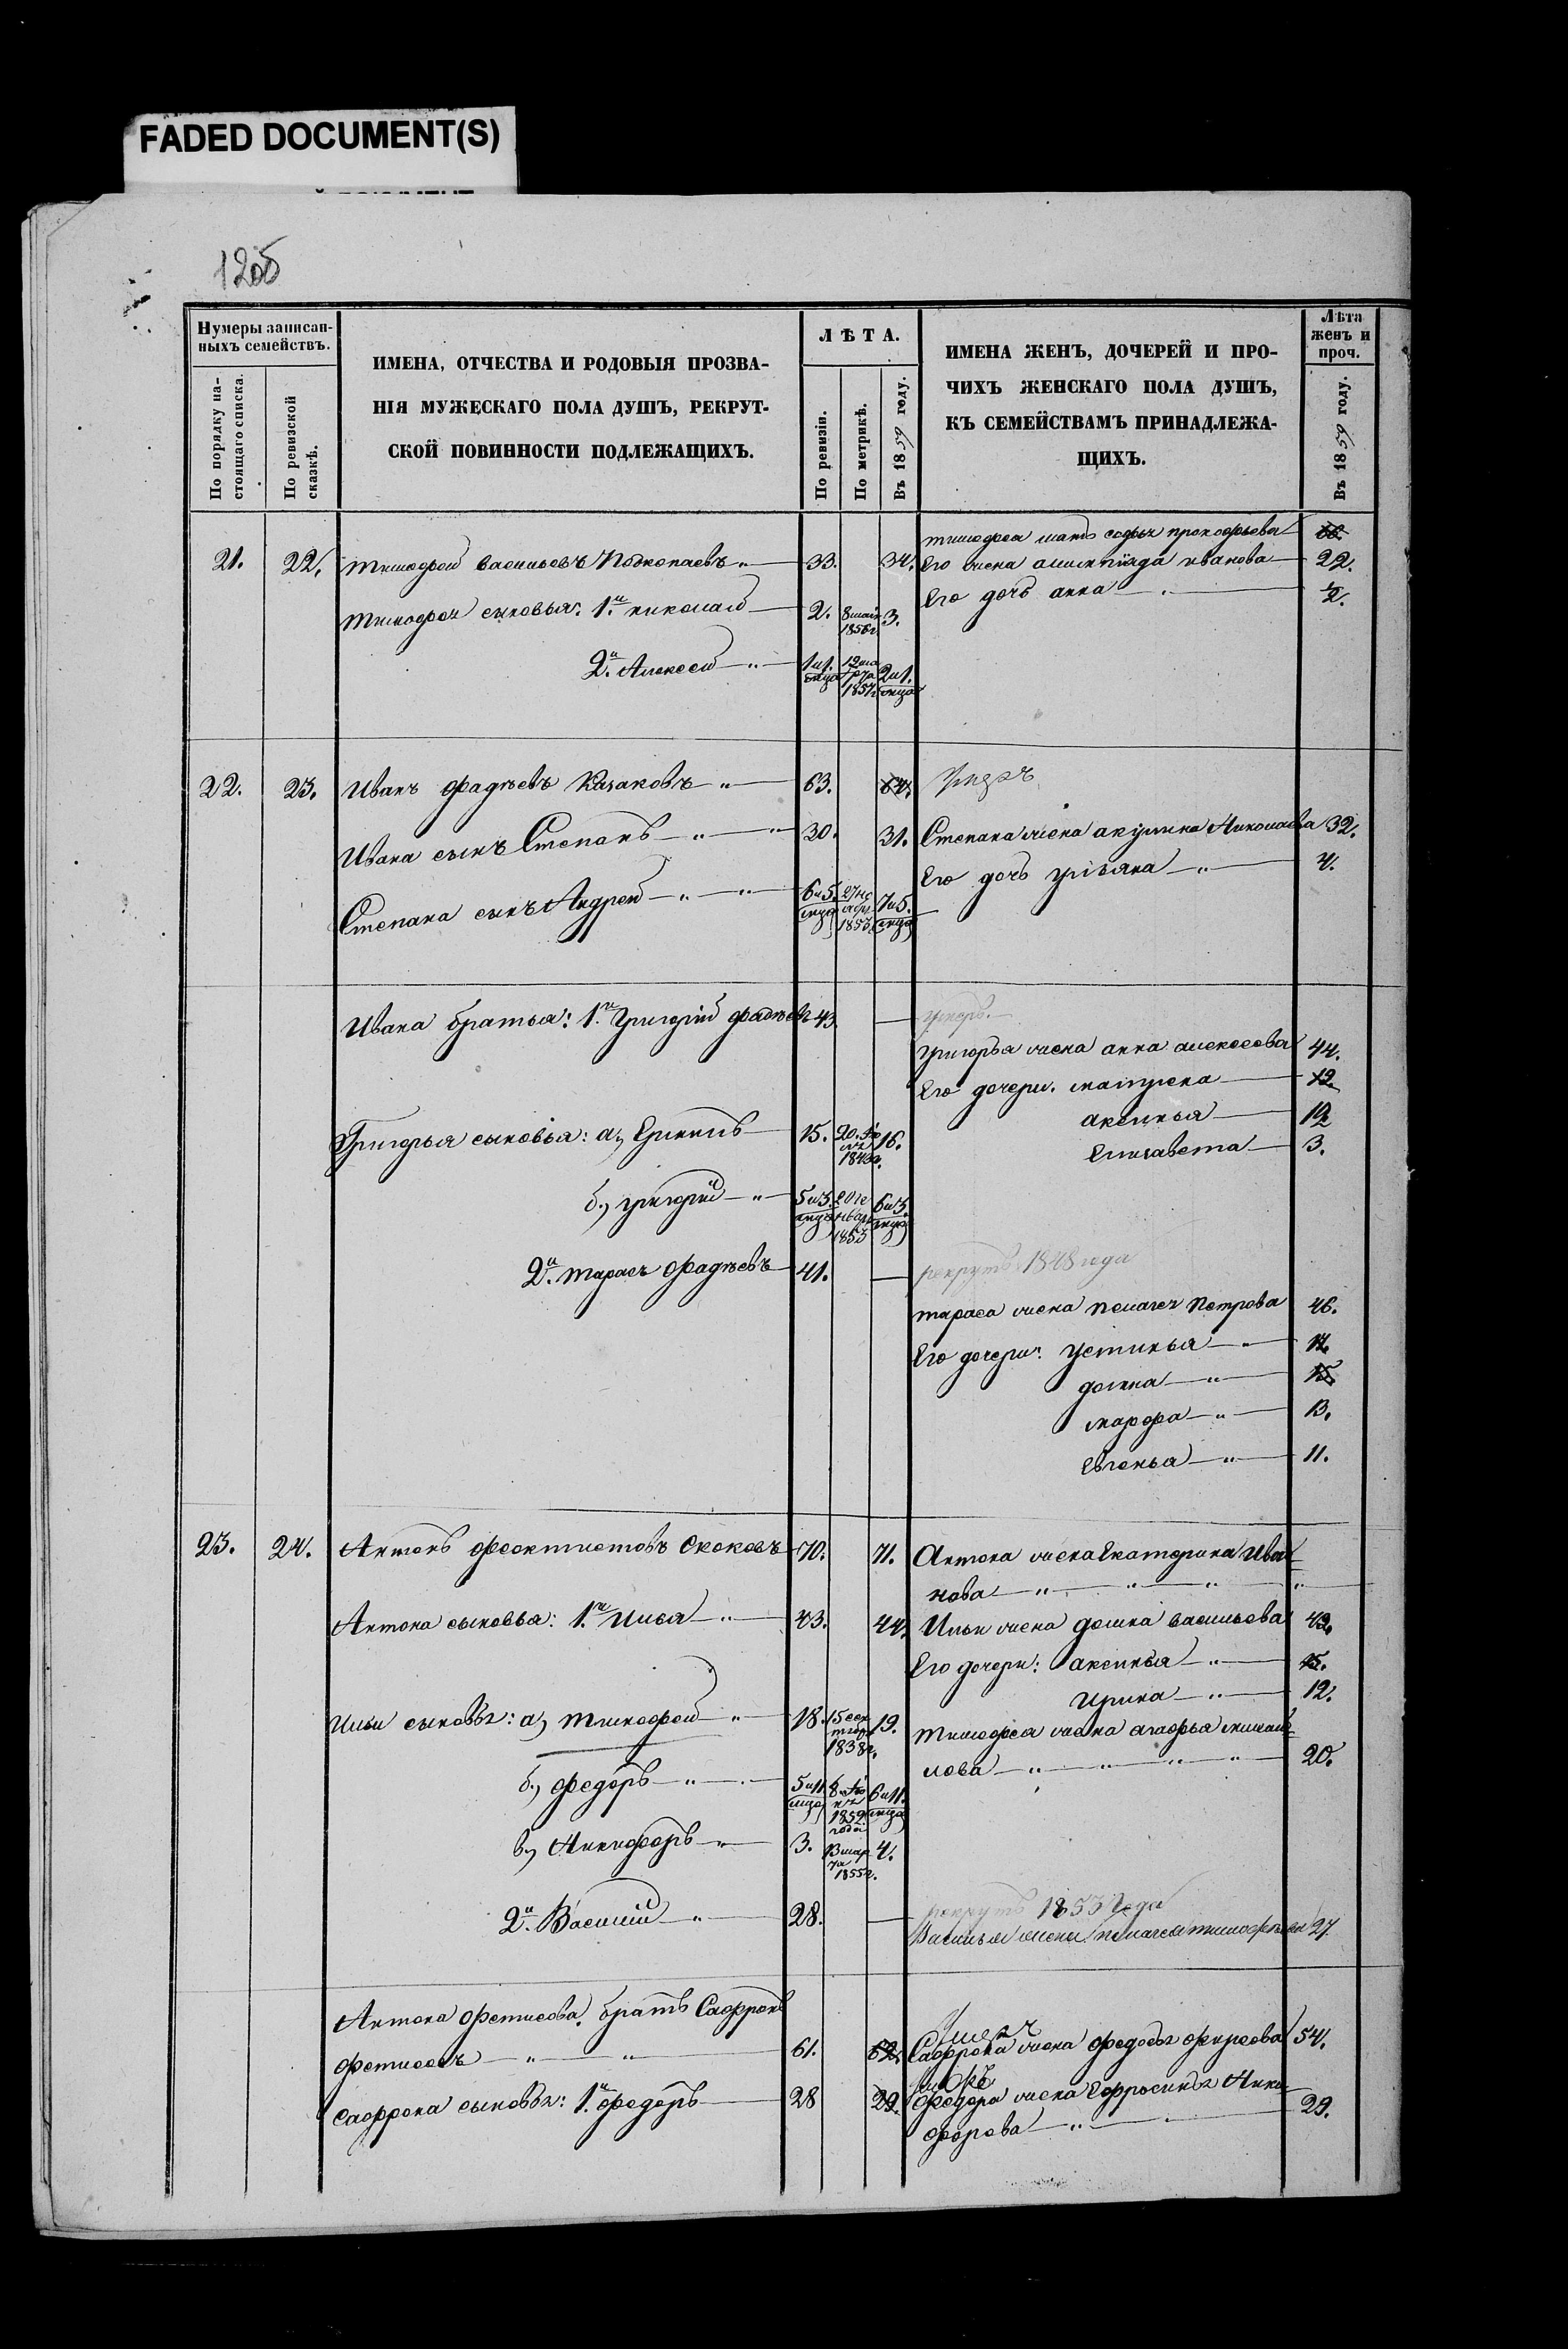 FADED DOCUMENT(S)
1205
Нумеры записан-
ныхъ семействъ.
По порядку на-
стоящаго списка.
По ревизской
сказкѣ.
ИМЕНА, ОТЧЕСТВА И РОДОВЫЯ ПРОЗВА-
НІЯ МУЖЕСКАГО ПОЛА ДУШЪ, РЕКРУТ-
СКОЙ ПОВИННОСТИ ПОДЛЕЖАЩИХЪ.
ЛѢТА.
По ревизіи.
По метрикѣ.
Въ 1859 году.
ИМЕНА ЖЕНЪ, ДОЧЕРЕЙ И ПРО-
ЧИХЪ ЖЕНСКАГО ПОЛА ДУШЪ,
КЪ СЕМЕЙСТВАМЪ ПРИНАДЛЕЖА-
ЩИХЪ.
Лѣта
женъ и
проч.
Въ 1859 году.
тимофея мать софья прокофьева
21. 22. тимофей васильевъ Подкопаевъ 33. 34. Его жена иванова 22.
тимофея сыновья: 1й николай 2. 8 мая 1856г. 3. Его дочь анна ½.
2й Алексей 1 и 1. мца 12 марта 1857г. 2 и 1. мца
22. 23. Иванъ фадѣевъ Казаковъ 63. 64. умеръ
Ивана сынъ Степанъ 30. 31. Степана жена акулина Николаева 32.
Степана сынъ Андрей 6 и 5. мца 1853. 7 и 5. мца Его дочь ульяна 4.
Ивана братья: 1й Григорій фадѣевъ 43 — умеръ.
Григорья жена анна алексеева 44.
Его дочери. матрена 12.
аксинья 12
Григорья сыновья: а, 15. 20. 1843г. 16. Елизавета 3.
б, григорій 5 и 3. мца 20 генваря 1853 6 и 3. мца
2й тарасъ фадѣевъ 41. — рекрутъ 1848 года
тараса жена пелагея Петрова 46.
Его дочери: устинья 17.
домна 15
марфа 13.
Евгенья 11.
23. 24. Антонъ феоктистовъ Скоковъ 70. 71. Антона жена Екатерина Ива-
нова
Антона сыновья: 1й Илья 43. 44. Ильи жена домна васильева 43.
Его дочери: аксинья 15.
Ирина 12.
Ильи сыновья: а, тимофей 18. 15 сентября 1838г. 19. тимофея жена агафья михай-
лова 20.
б, федоръ 5 и 11 мца 6 и 11. мца
в, Никифоръ 3. 13 марта 1855г. 4.
2й Василій 28. — рекрутъ 1853 года
Василья жена пелагея тимофеева 27.
Антона фетисова братъ Сафронъ
фетисовъ 61. 62. умеръ Сафрона жена федосья фирсова 54.
сафрона сыновья: 1й федоръ 28 29. федора жена Ефросинья Ники-
форова 29.